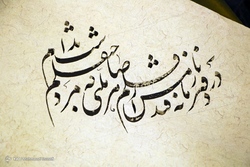 در دفتر زمانه فتد نامش از قلم
هر ملتی که مردم صاحب قلم نداشت